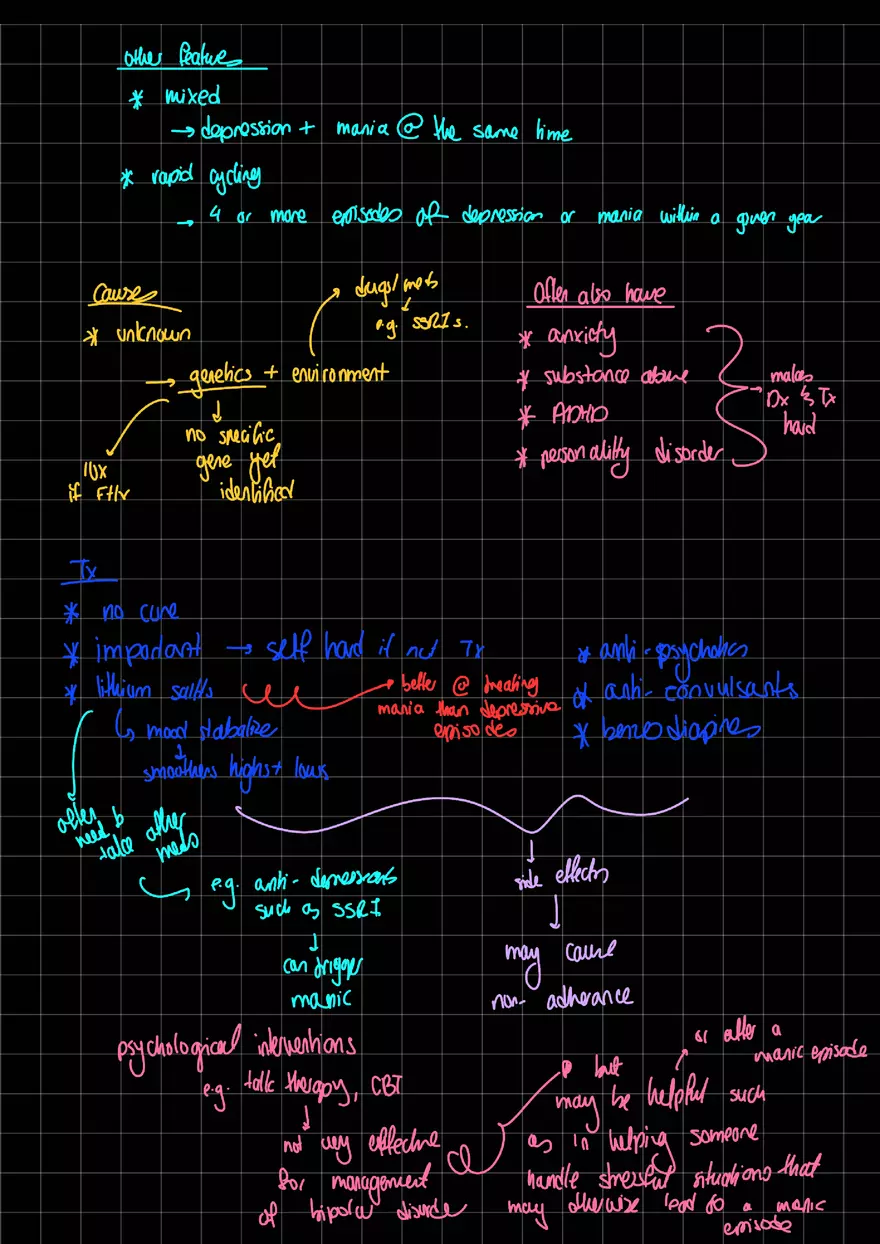 other features
* mixed
→ depression + mania @ the same time
* rapid cycling
→ 4 or more episodes of depression or mania within a given year
Causes
* unknown
→ genetics + environment
drugs/meds
e.g. SSRIs.
no specific
gene yet
identified
10x
if FHx
Often also have
* anxiety
* substance abuse
* ADHD
* personality disorder
makes
Dx & Tx
hard
Tx
* no cure
* important → self hard if not Tx
* lithium salts
↳ mood stabalize
smoothers highs + lows
better @ treating
mania than depressive
episodes
* anti-psychotics
* anti-convulsants
* benzodiapines
often
need to
take other
meds
e.g. anti-depressants
such as SSRI
can trigger
manic
side effects
may cause
non-adherance
psychological interventions
e.g. talk therapy, CBT
not very effective
for management
of bipolar disorde
but
may be helpful such
as in helping someone
handle stressful situations that
may otherwise lead to a manic
episode
or after a
manic episode